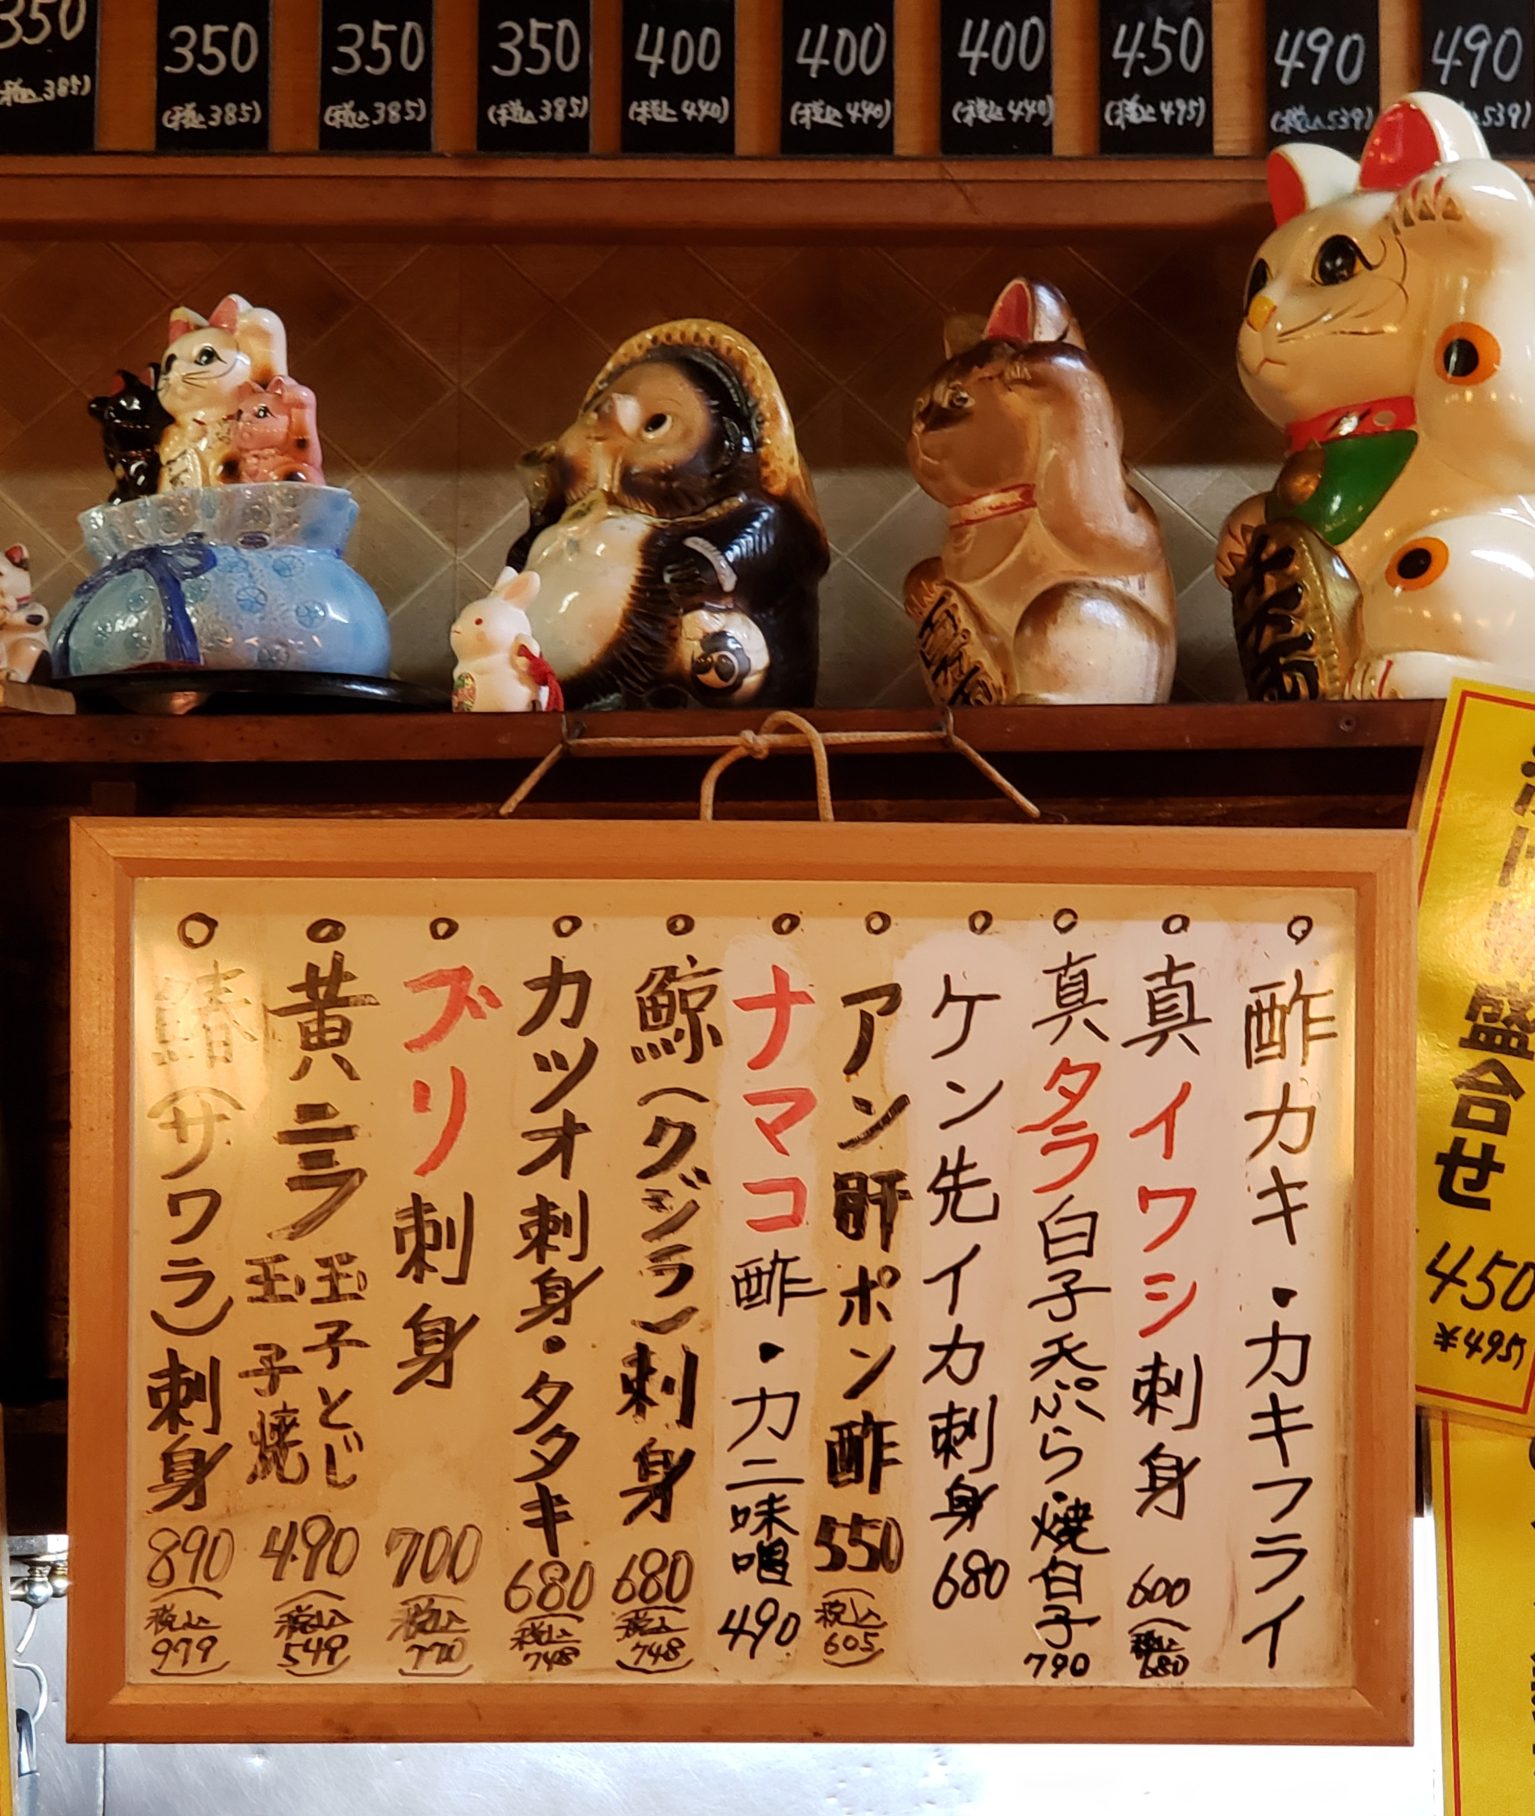 350
(税込385)
350
(税込385)
350
(税込385)
350
(税込385)
400
(税込440)
400
(税込440)
400
(税込440)
450
(税込495)
490
(税込539)
490
税込539)
酢カキ・カキフライ
真イワシ刺身
600
(税込
680
真タラ白子天ぷら・焼白子
790
ケン先イカ刺身
680
アン肝ポン酢
550
(税込
605)
ナマコ酢・カニ味噌
490
鯨(クジラ)刺身
680
(税込
748)
カツオ刺身・タタキ
680
(税込
748
ブリ刺身
700
(税込
770)
黄ニラ玉子とじ
玉子焼
490
(税込
549)
鰆(サワラ)刺身
890
(税込
979)
盛合せ
450
¥495)